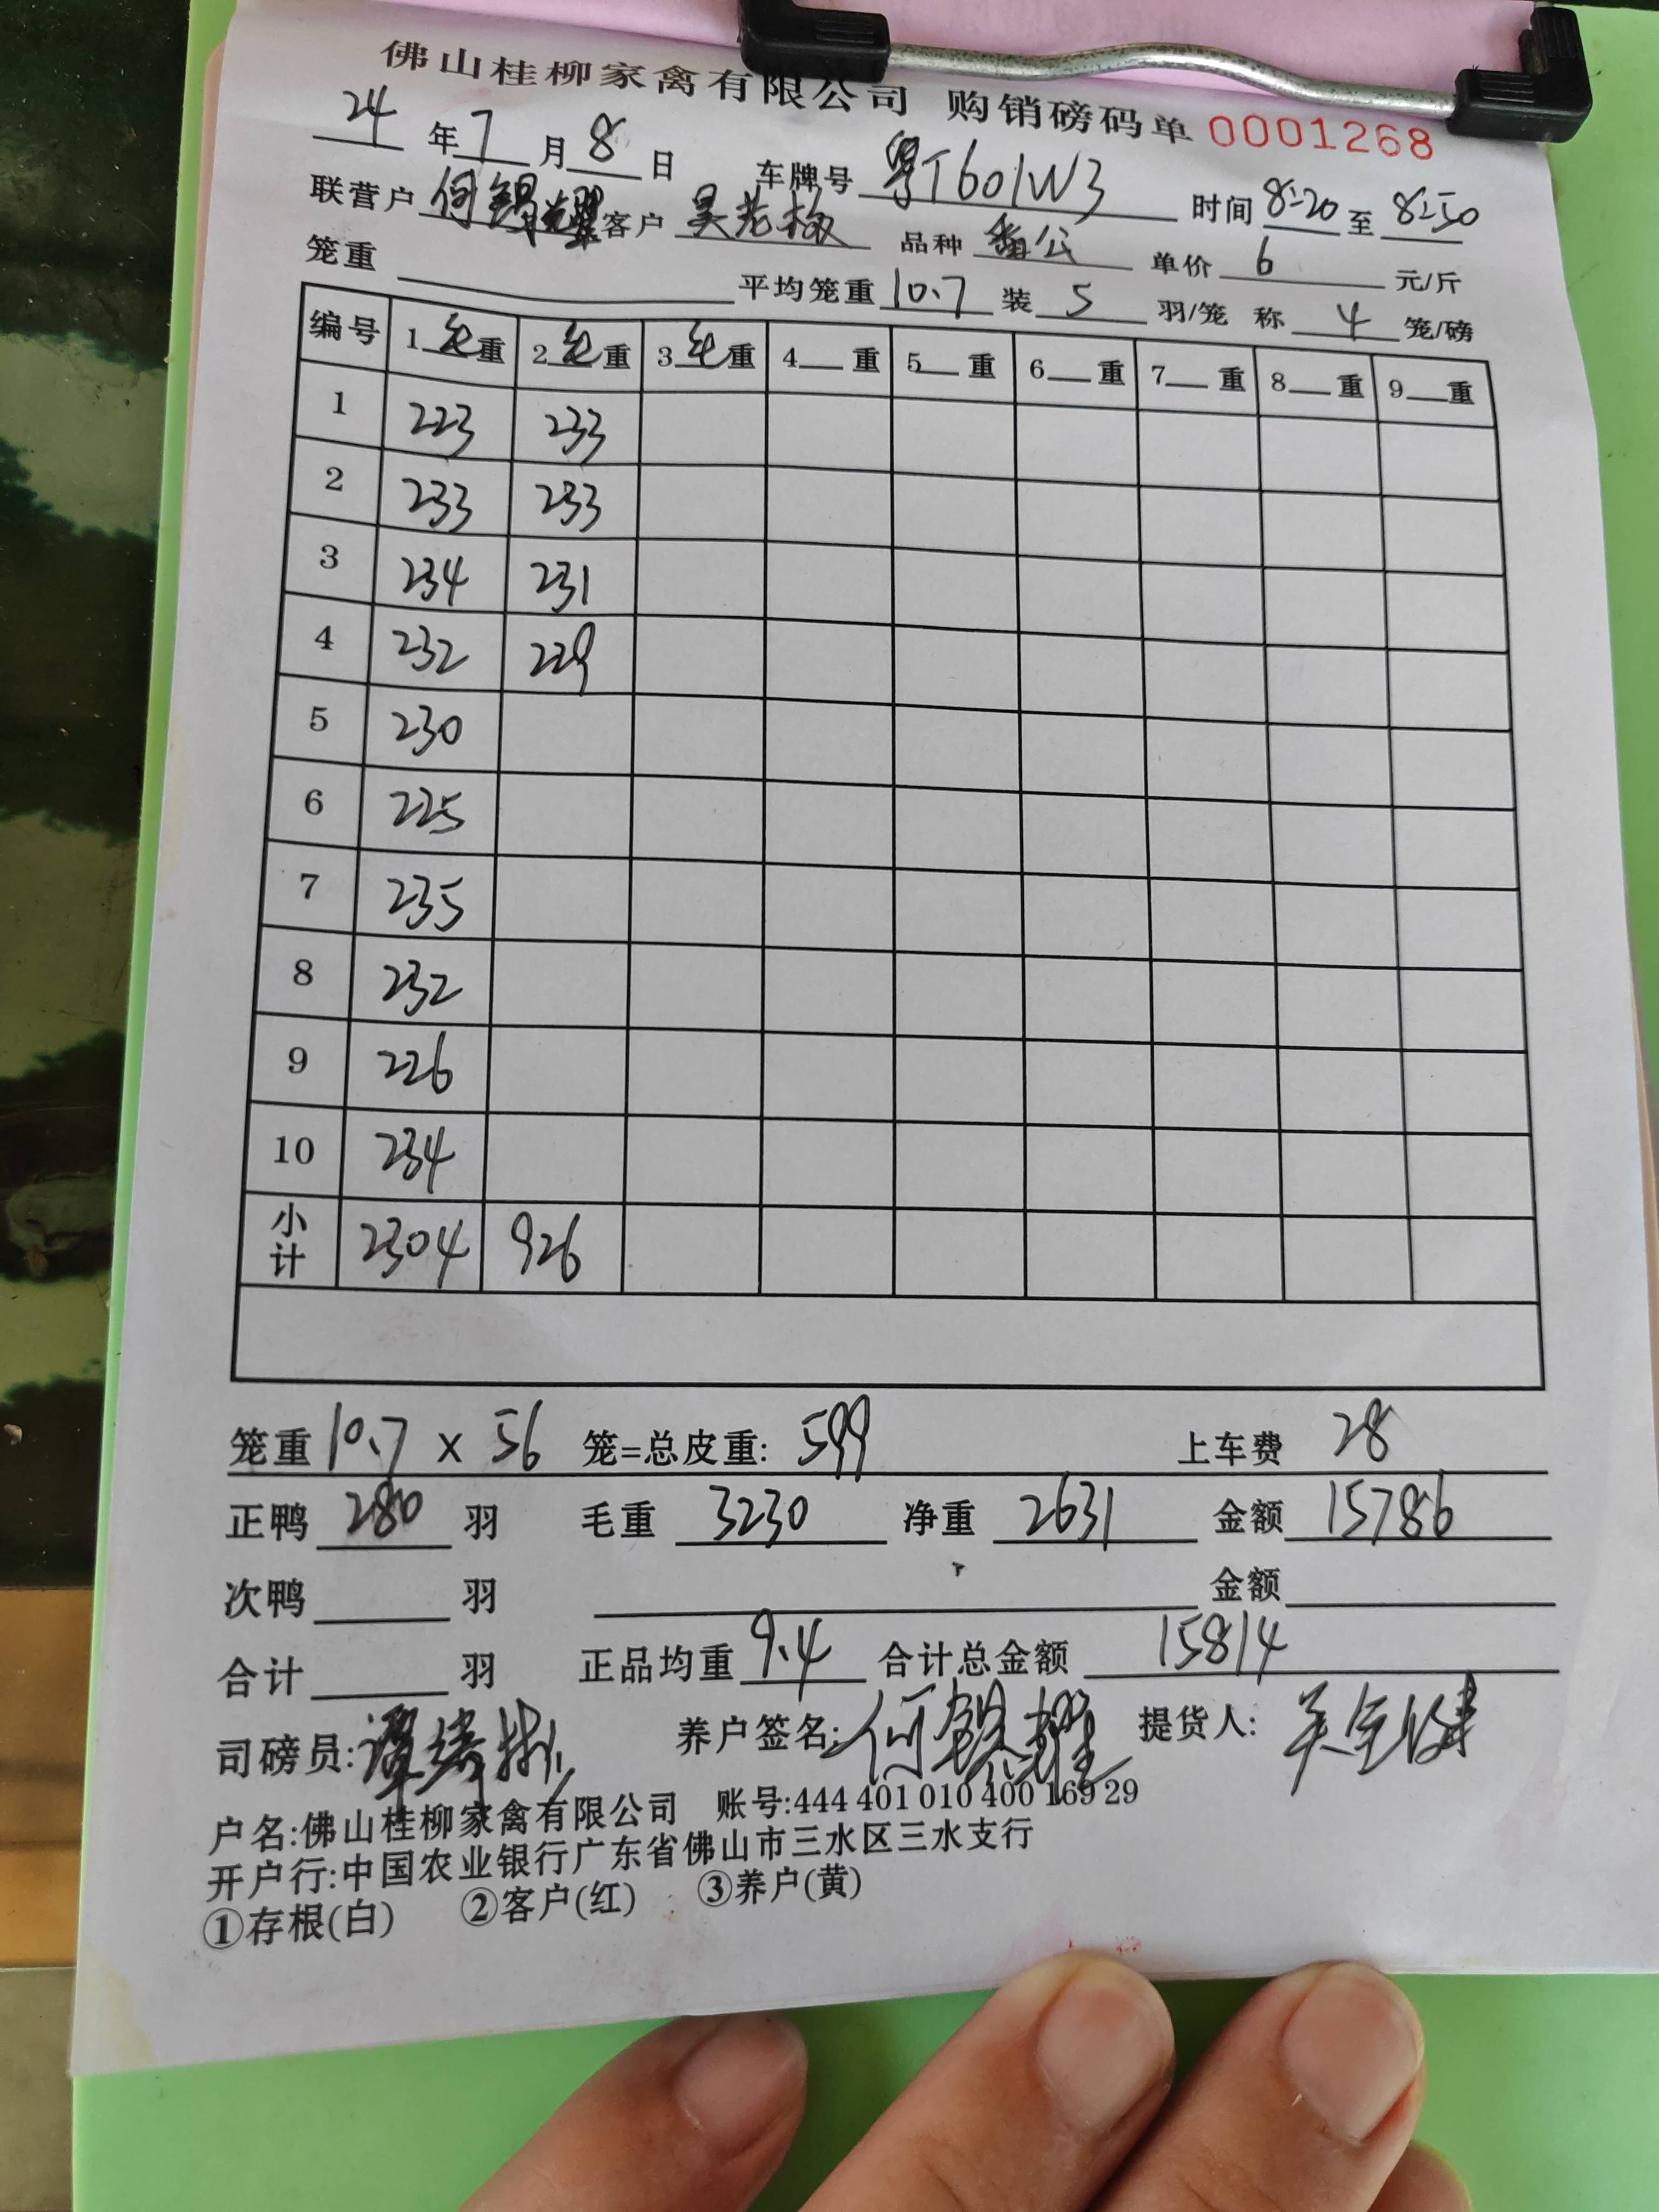 佛山桂柳家禽有限公司 购销磅码单 0001268
24年7月8日 车牌号 粤T601W3 时间 8:20 至 8:50
联营户 何锡耀 客户 吴老板 品种 番公 单价 6 元/斤
笼重 平均笼重 10.7 装 5 羽/笼 称 4 笼/磅
编号 1 毛重 2 毛重 3 毛重 4 重 5 重 6 重 7 重 8 重 9 重
1 223 233
2 233 233
3 234 231
4 232 229
5 230
6 225
7 235
8 232
9 226
10 234
小计 2304 926
笼重 10.7 x 56 笼=总皮重: 599 上车费 28
正鸭 280 羽 毛重 3230 净重 2631 金额 15786
次鸭 羽 金额
合计 羽 正品均重 9.4 合计总金额 15814
司磅员: 养户签名: 何锡耀 提货人:
户名:佛山桂柳家禽有限公司 账号:444 401 010 400 169 29
开户行:中国农业银行广东省佛山市三水区三水支行
①存根(白) ②客户(红) ③养户(黄)